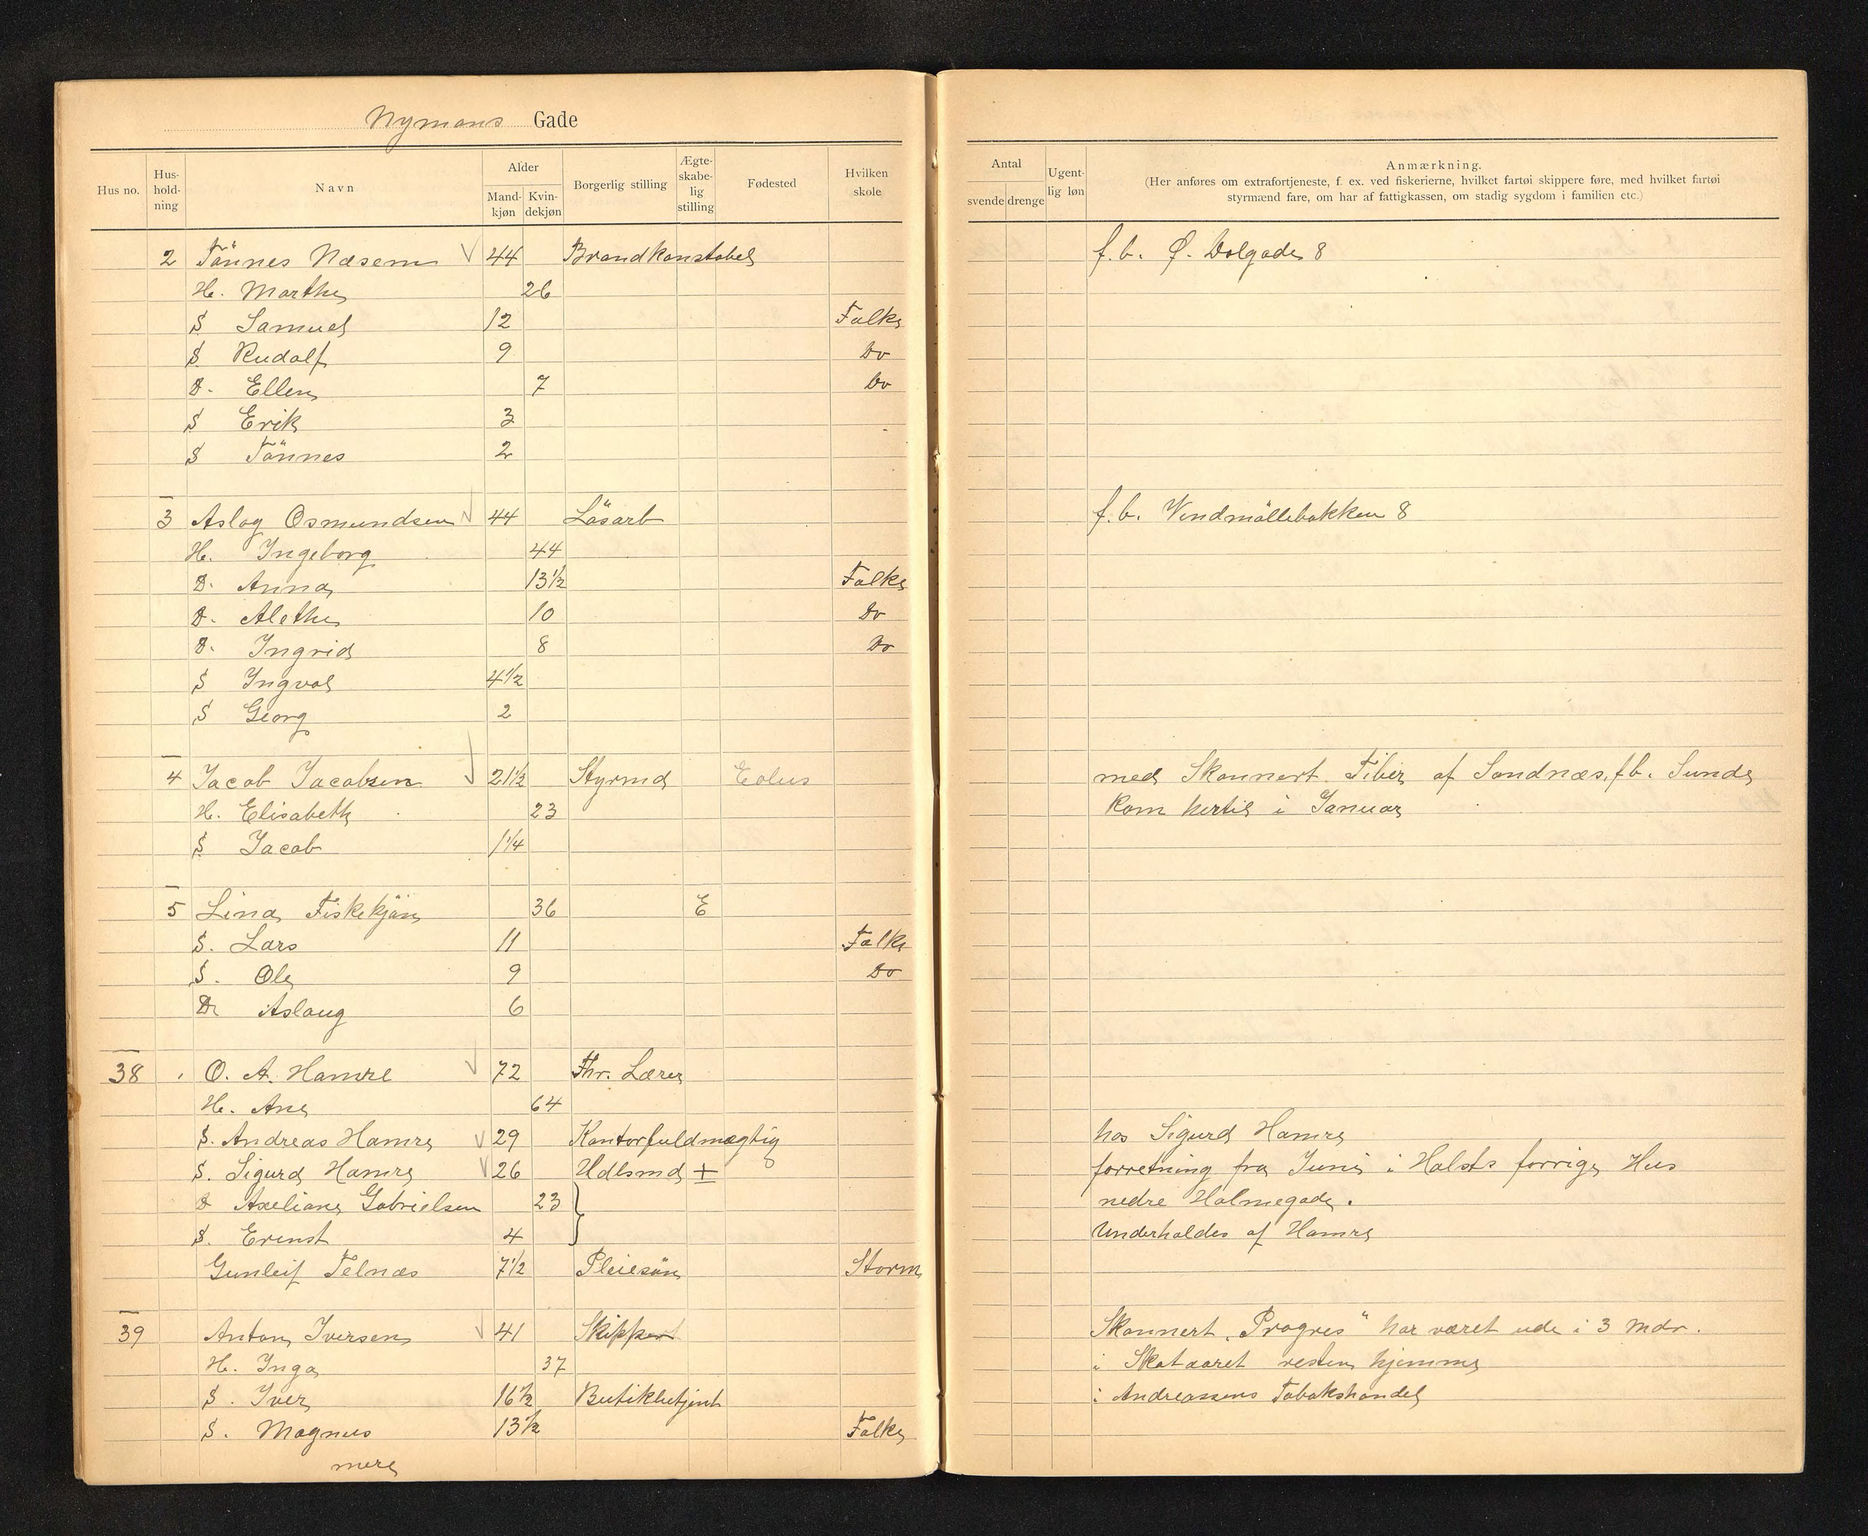 Nymans Gade
Hus no. Hus-hold-ning Navn Alder Mand-kjøn Kvin-dekjøn Borgerlig stilling Ægte-skabe-lig stilling Fødested Hvilken skole
Antal svende drenge Ugent-lig løn Anmærkning.
(Her anføres om extrafortjeneste, f. ex. ved fiskerierne, hvilket fartøi skippere føre, med hvilket fartøi
styrmænd fare, om har af fattigkassen, om stadig sygdom i familien etc.)
2 Tönnes Næsem 44 Brandkonstabel f. b. Ø. Dolgade 8
H. Marthe 26
S Samuel 12 Folke
S Rudolf 9 Do
D. Ellen 7 Do
S Erik 3
S Tönnes 2
3 Aslag Osmundsen 44 Lösarb f. b. Vindmöllebakken 8
H. Ingeborg 44
D. Anna 13½ Folke
D. Alethe 10 Do
D. Ingrid 8 Do
S Ingval 4½
S Georg 2
4 Jacob Jacobsen 21½ Styrmd Eolus med Skonnert Tiber af Sandnæs, f b. Sunde
H. Elisabeth 23 kom hertil i Januar
S Jacob 1¼
5 Lina Fiskekjön 36 E
S. Lars 11 Folke
S. Ole 9 Do
D. Aslaug 6
38 O. A. Hamre 72 Fhr. Lærer
H. Ane 64
S. Andreas Hamre 29 Kontorfuldmægtig hos Sigurd Hamre
S. Sigurd Hamre 26 Hdlsmd ± forretning fra Juni i Holsts forrige Hus
D Axeliane Gabrielsen 23 } nedre Holmegade.
S. Ernst 4 Underholdes af Hamre
Gunleif Telnæs 7½ Pleiesön Storm
39 Anton Iversen 41 Skipper Skonnert „Progres“ har været ude i 3 mdr.
H. Inga 37 i Skataaret resten hjemme
S. Iver 16½ Butikbetjent i Andreassens Tobakshandel
S. Magnus 13½ Folke
mere